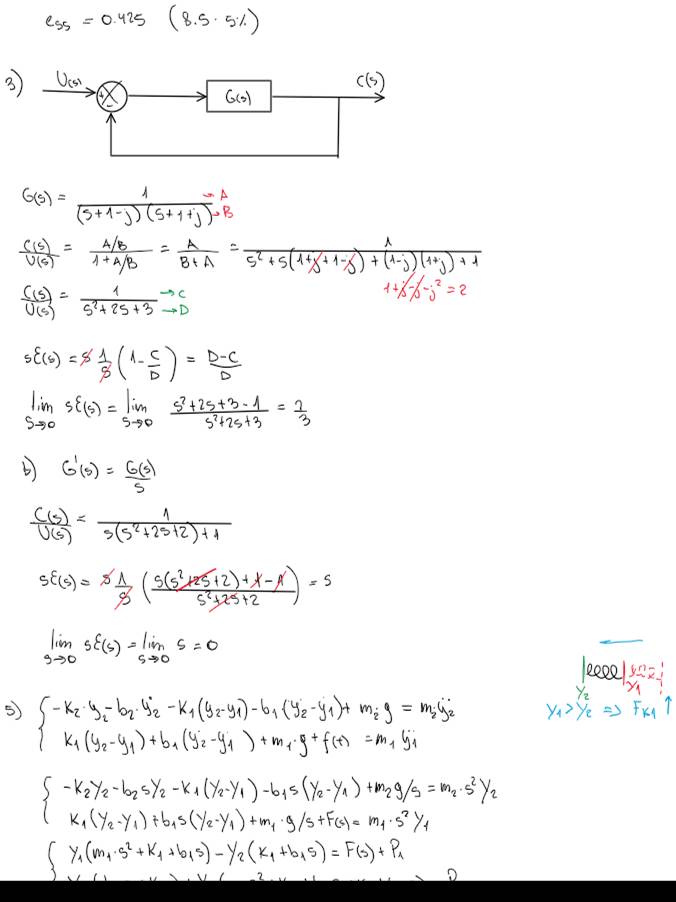 ess = 0.425 (8.5 · 5%)
3) U(s) + - G(s) C(s)
G(s) = 1 / ((s+1-j)(s+1+j)) → A → B
C(s)/U(s) = (A/B)/(1+A/B) = A/(B+A) = 1/(s²+s(1+j+1-j)+(1-j)(1+j)+1)
1+j-j-j² = 2
C(s)/U(s) = 1/(s²+2s+3) → C → D
sE(s) = s 1/s (1 - C/D) = (D-C)/D
lim s→0 sE(s) = lim s→0 (s²+2s+3-1)/(s²+2s+3) = 2/3
b) G'(s) = G(s)/s
C(s)/U(s) = 1/(s(s²+2s+2)+1)
sE(s) = s 1/s ((s(s²+2s+2)+1-1)/(s²+2s+2)) = s
lim s→0 sE(s) = lim s→0 s = 0
y2 y1
5) { -k2·y2 - b2·ẏ2 - k1(y2-y1) - b1(ẏ2-ẏ1) + m2g = m2ÿ2
y1 > y2 ⇒ Fk1 ↑
k1(y2-y1) + b1(ẏ2-ẏ1) + m1·g + f(t) = m1ÿ1
{ -k2Y2 - b2sY2 - k1(Y2-Y1) - b1s(Y2-Y1) + m2g/s = m2·s²Y2
k1(Y2-Y1) + b1s(Y2-Y1) + m1·g/s + F(s) = m1·s²Y1
{ Y1(m1·s²+k1+b1s) - Y2(k1+b1s) = F(s) + P1